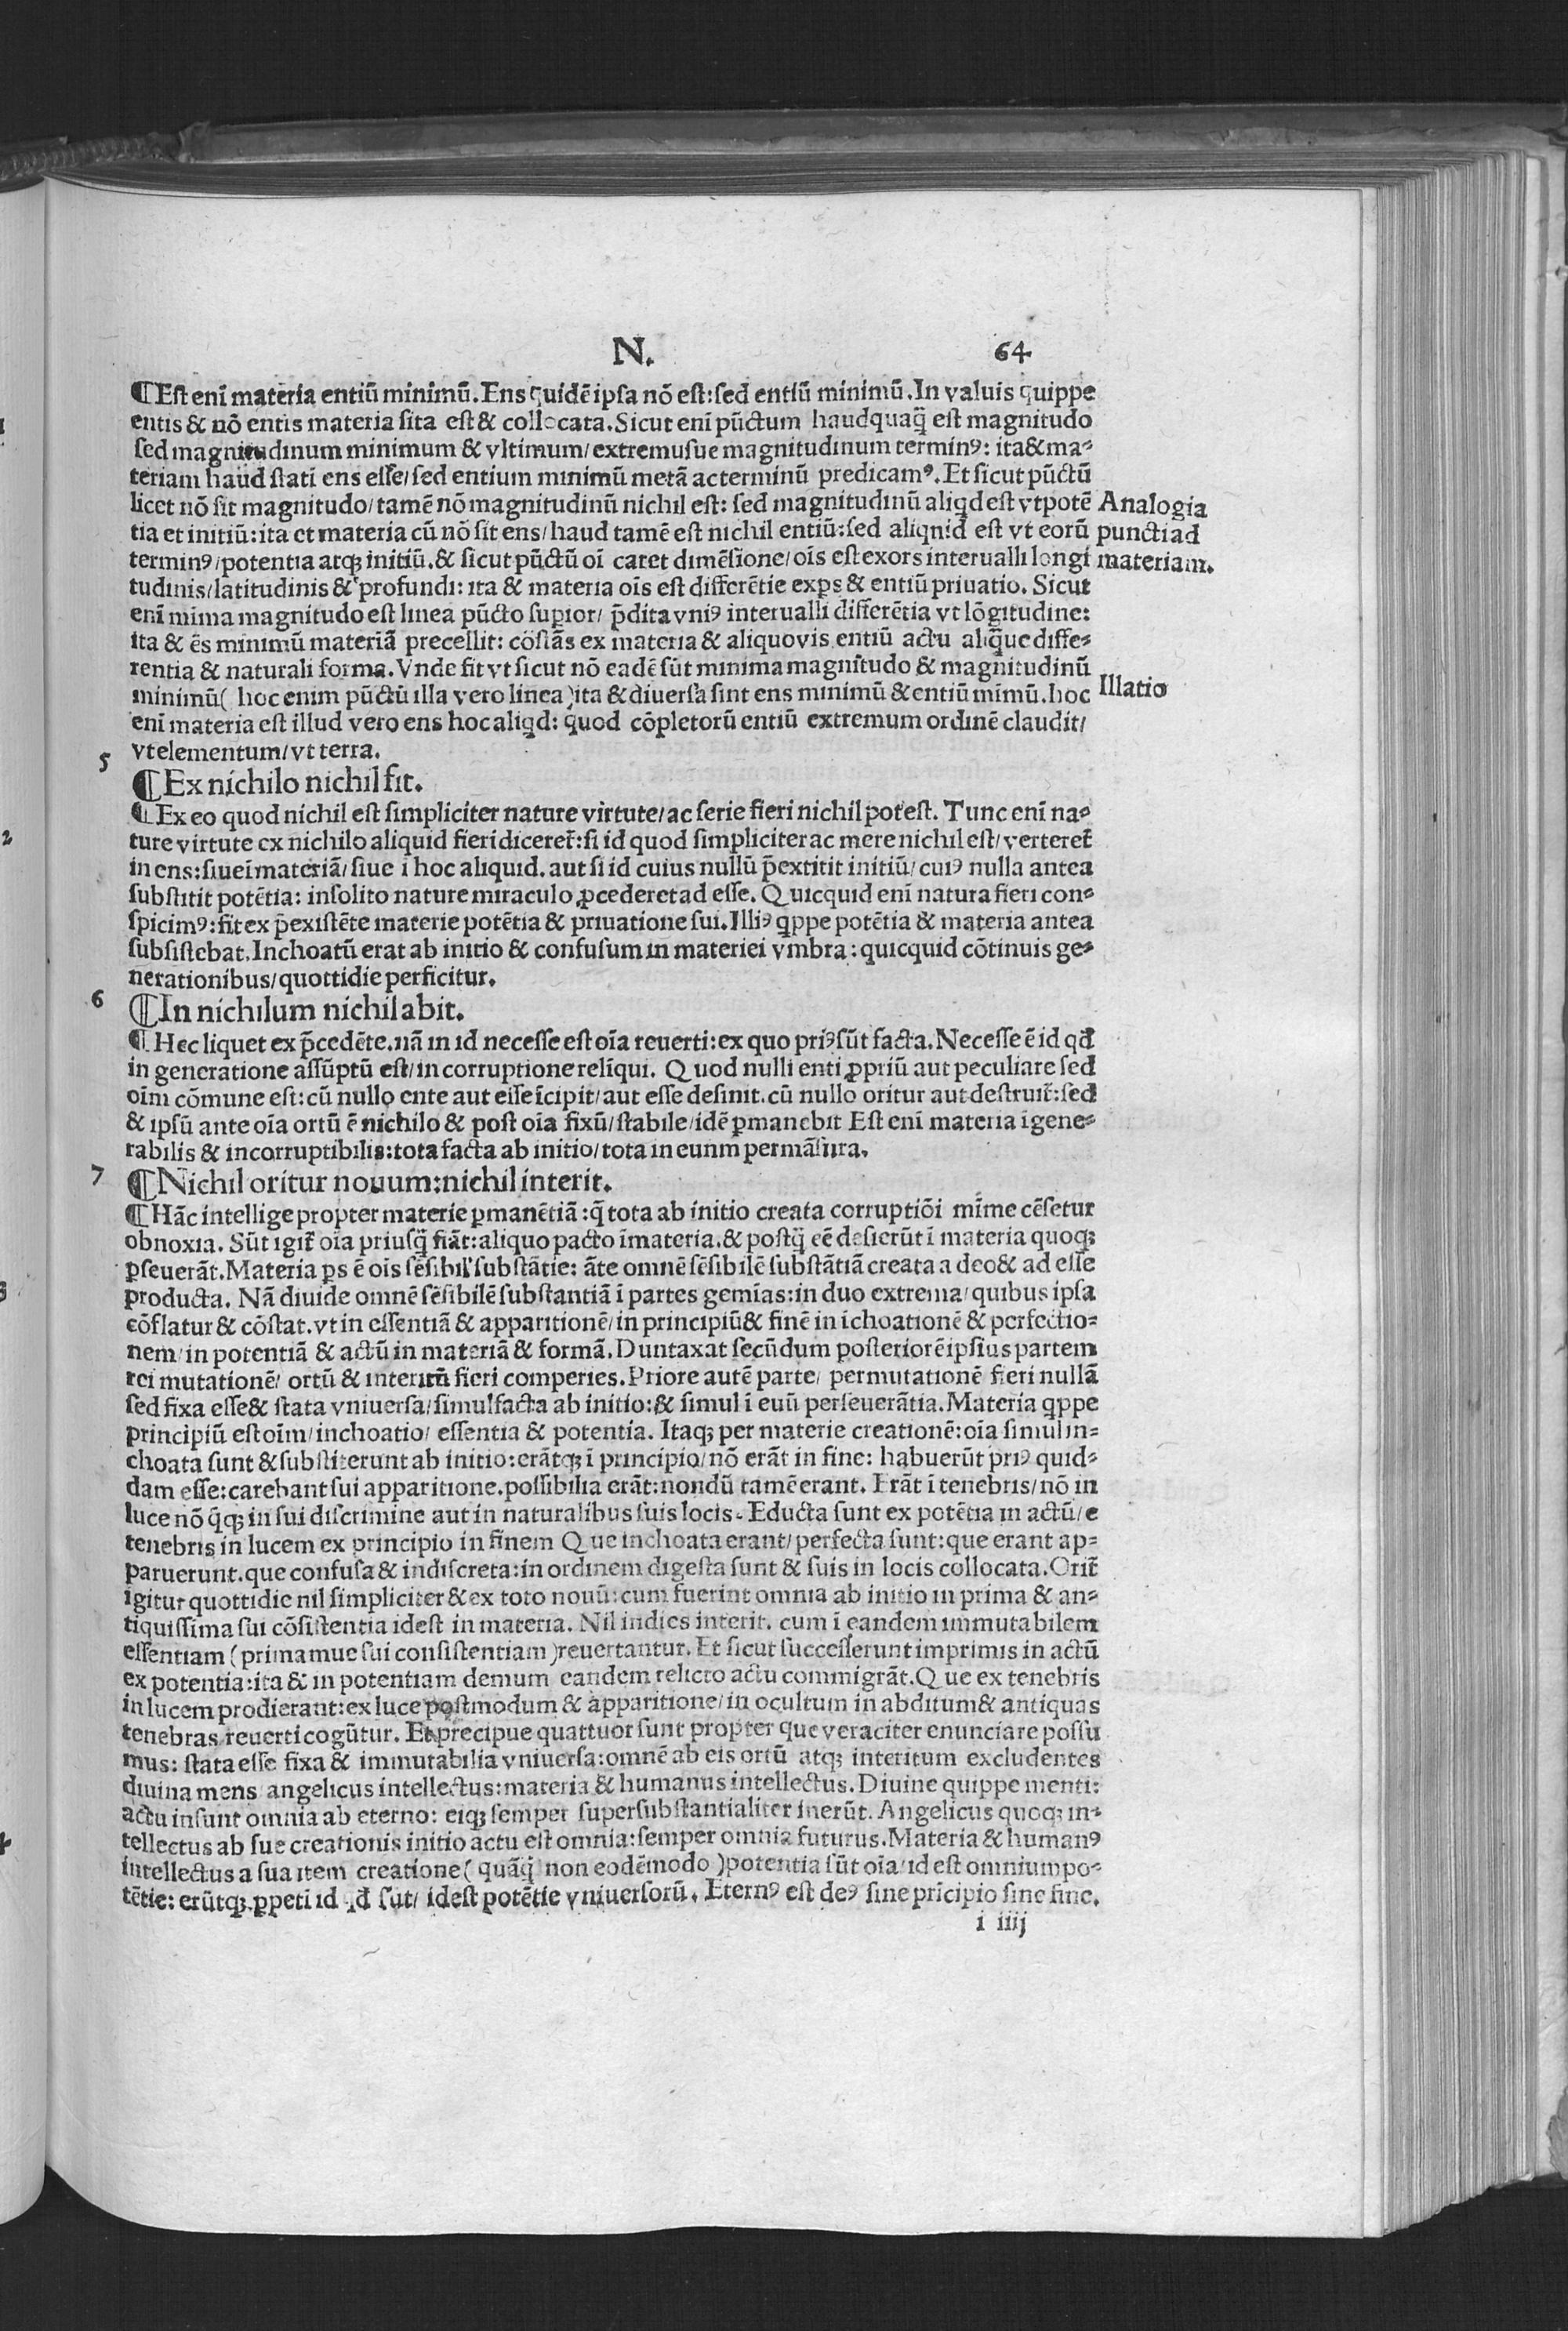 N. 64
¶Est enī materia entiū minimū. Ens quidē ipsa nō est: sed entiū minimū. In valuis quippe
entis & nō entis materia sita est & collocata. Sicut enī pūctum haudquaq̄ est magnitudo
sed magnitudinum minimum & vltimum/ extremusue magnitudinum terminꝰ: ita & ma-
teriam haud statī ens esse/ sed entium minimū metā ac terminū predicamꝰ. Et sicut pūctū
licet nō sit magnitudo/ tamē nō magnitudinū nichil est: sed magnitudinū aliqd est vtpotē
Analogia
tia et initiū: ita et materia cū nō sit ens/ haud tamē est nichil entiū: sed aliqnid est vt eorū
puncti ad
terminꝰ/ potentia atqꝫ initiū. & sicut pūctū oī caret dimēsione/ oīs est exors interualli longi
materiam.
tudinis/ latitudinis & profundi: ita & materia oīs est differētie exp̱s & entiū priuatio. Sicut
enī mima magnitudo est linea pūcto sup̱ior/ p̄dita vniꝰ interualli differētia vt lōgitudine:
ita & ēs minimū materiā precellit: cōstās ex materia & aliquovis entiū actu aliq̄que diffe-
rentia & naturali forma. Vnde fit vt sicut nō eadē sūt minima magnitudo & magnitudinū
minimū( hoc enim pūctū illa vero linea )ita & diuersa sint ens minimū & entiū mīmū. hoc
Illatio
enī materia est illud vero ens hoc aliqd: quod cōpletorū entiū extremum ordinē claudit/
vt elementum/ vt terra.
5 ¶Ex nichilo nichil fit.
¶Ex eo quod nichil est simpliciter nature virtute/ ac serie fieri nichil potest. Tunc enī na-
ture virtute ex nichilo aliquid fieri diceret᷑: si id quod simpliciter ac mere nichil est/ verteret᷑
in ens: siue ī materiā/ siue ī hoc aliquid. aut si id cuius nullū p̄extitit initiū/ cuiꝰ nulla antea
substitit potētia: insolito nature miraculo ꝓcederet ad esse. Quicquid enī natura fieri con-
spicimꝰ: fit ex p̄existēte materie potētia & priuatione sui. Illiꝰ qppe potētia & materia antea
subsistebat. Inchoatū erat ab initio & confusum in materiei vmbra: quicquid cōtinuis ge-
nerationibus/ quottidie perficitur.
6 ¶In nichilum nichil abit.
¶Hec liquet ex p̄cedēte. nā in id necesse est oīa reuerti: ex quo priꝰ sūt facta. Necesse ē id qd
in generatione assūptū est/ in corruptione relīqui. Quod nulli enti ꝓpriū aut peculiare sed
oīm cōmune est: cū nullo ente aut esse īcipit/ aut esse desinit. cū nullo oritur aut destruit᷑: sed
& ipsū ante oīa ortū ē nichilo & post oīa fixū/ stabile/ idē ꝑmanebit Est enī materia īgene-
rabilis & incorruptibilis: tota facta ab initio/ tota in euum permāsura.
7 ¶Nichil oritur nouum: nichil interit.
¶Hāc intellige propter materie ꝑmanētiā: q̄ tota ab initio creata corruptiōi mīme cēsetur
obnoxia. Sūt igit᷑ oīa priusq̄ fiāt: aliquo pacto ī materia. & postq̄ eē desierūt ī materia quoqꝫ
ꝑseuerāt. Materia ꝑs ē oīs sēsibilꝰ substātie: āte omnē sēsibilē substātiā creata a deo & ad esse
producta. Nā diuide omnē sēsibilē substantiā ī partes gemīas: in duo extrema/ quibus ipsa
cōflatur & cōstat. vt in essentiā & apparitionē/ in principiū & finē in ichoationē & perfectio-
nem/ in potentiā & actū in materiā & formā. Duntaxat secūdum posteriorē ipsius partem
rei mutationē/ ortū & interitū fieri comperies. Priore autē parte/ permutationē fieri nullā
sed fixa esse & stata vniuersa/ simul facta ab initio: & simul ī euū perseuerātia. Materia qppe
principiū est oīm/ inchoatio/ essentia & potentia. Itaqꝫ per materie creationē: oīa simul in-
choata sunt & substiterunt ab initio: erātqꝫ ī principio/ nō erāt in fine: habuerūt priꝰ quid-
dam esse: carebant sui apparitione. possibilia erāt: nondū tamē erant. Erāt ī tenebris/ nō in
luce nō q̄qꝫ in sui discrimine aut in naturalibus suis locis. Educta sunt ex potētia in actū/ e
tenebris in lucem ex principio in finem Que inchoata erant/ perfecta sunt: que erant ap-
paruerunt. que confusa & indiscreta: in ordinem digesta sunt & suis in locis collocata. Orit᷑
igitur quottidie nil simpliciter & ex toto nouū: cum fuerint omnia ab initio in prima & an-
tiquissima sui cōsistentia idest in materia. Nil indies interit. cum ī eandem immutabilem
essentiam ( primamue sui consistentiam )reuertantur. Et sicut successerunt imprimis in actū
ex potentia: ita & in potentiam demum eandem relicto actu commigrāt. Que ex tenebris
in lucem prodierant: ex luce postmodum & apparitione/ in ocultum in abditum & antiquas
tenebras reuerti cogūtur. Et precipue quattuor sunt propter que veraciter enunciare possu
mus: stata esse fixa & immutabilia vniuersa: omnē ab eis ortū atqꝫ interitum excludentes
diuina mens angelicus intellectus: materia & humanus intellectus. Diuine quippe menti:
actu insunt omnia ab eterno: eiqꝫ semper supersubstantialiter inerūt. Angelicus quoqꝫ in-
tellectus ab sue creationis initio actu est omnia: semper omnia futurus. Materia & humanꝰ
intellectus a sua item creatione ( quāq̄ non eodēmodo )potentia sūt oīa/ id est omnium po-
tētie: erūtqꝫ ꝑpeti id qd sūt/ idest potētie vniuersorū. Eternꝰ est deꝰ sine prīcipio sine fine.
i iiij